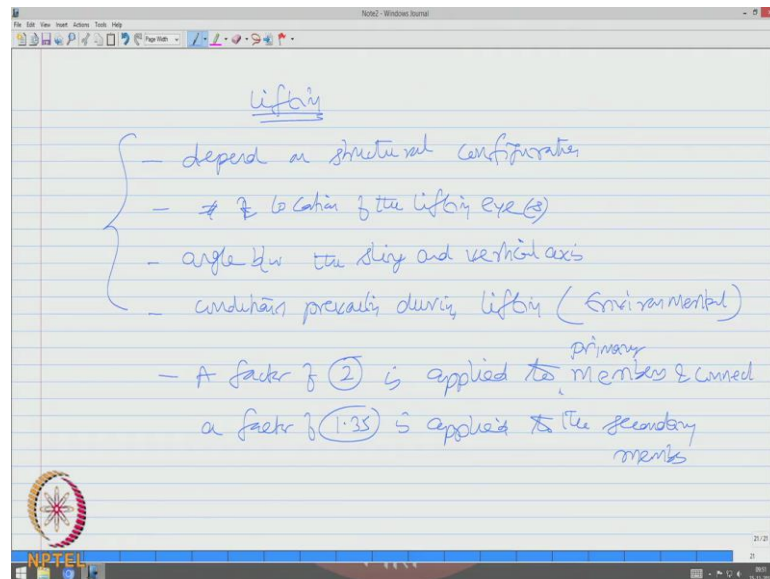 Note2 - Windows Journal
File Edit View Insert Actions Tools Help
Page Width
lifting
- depend on structural configuration
- # & location of the lifting eye(s)
- angle b/w the sling and vertical axis
- conditions prevailing during lifting (Environmental)
- A factor of 2 is applied to primary members & connect
a factor of 1.35 is applied to the secondary
members
21/21
21
NPTEL